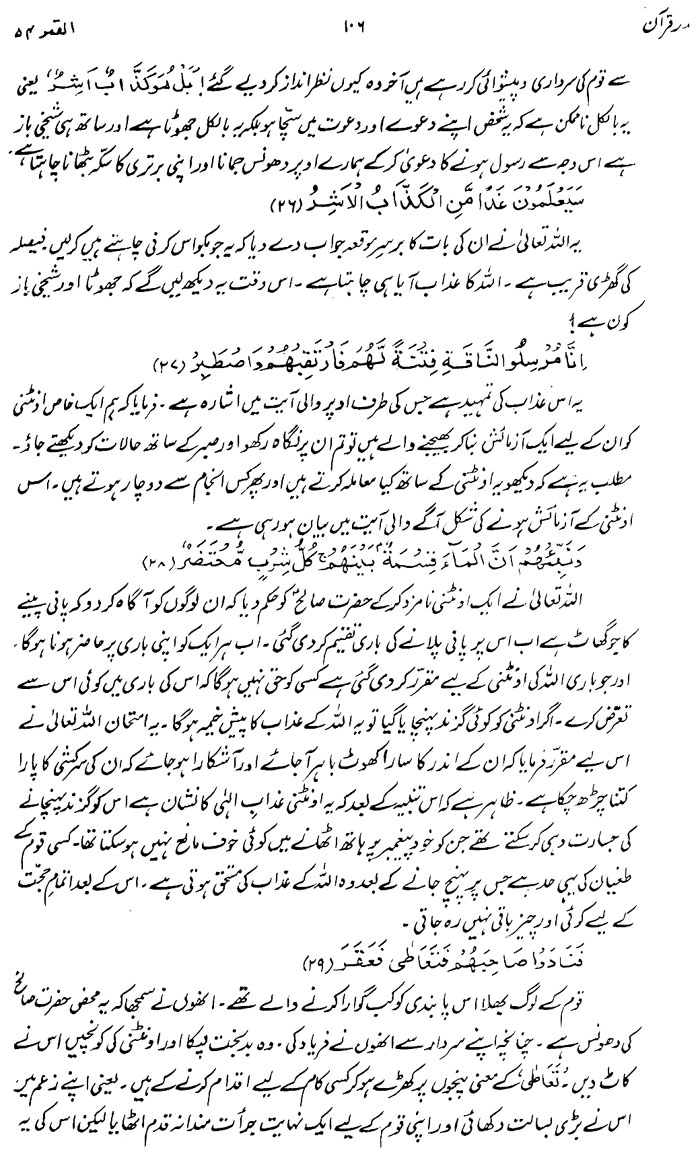 در قرآن ۱۰۶ القمر ۵۴
سے قوم کی سرداری و پیشوائی کر رہے ہیں آخر وہ کیوں نظر انداز کر دیے گئے! ’بَلْ هُوَ كَذَّابٌ اَشِرٌ‘ یعنی
یہ بالکل ناممکن ہے کہ یہ شخص اپنے دعوے اور دعوت میں سچا ہو بلکہ یہ بالکل جھوٹا ہے اور ساتھ ہی شیخی باز
ہے اس وجہ سے رسول ہونے کا دعویٰ کر کے ہمارے اوپر دھونس جمانا اور اپنی برتری کا سکّہ بٹھانا چاہتا ہے۔
سَيَعْلَمُوْنَ غَدًا مَّنِ الْكَذَّابُ الْاَشِرُ (۲۶)
یہ اللہ تعالیٰ نے ان کی بات کا برسرِ موقعہ جواب دے دیا کہ یہ جو بکواس کرنی چاہتے ہیں کر لیں۔ فیصلہ
کی گھڑی قریب ہے۔ اللہ کا عذاب آیا ہی چاہتا ہے۔ اس وقت یہ دیکھ لیں گے کہ جھوٹا اور شیخی باز
کون ہے!
اِنَّا مُرْسِلُوا النَّاقَةِ فِتْنَةً لَّهُمْ فَارْتَقِبْهُمْ وَاصْطَبِرْ (۲۷)
یہ اس عذاب کی تمہید ہے جس کی طرف اوپر والی آیت میں اشارہ ہے۔ فرمایا کہ ہم ایک خاص اونٹنی
کو ان کے لیے ایک آزمائش بنا کر بھیجنے والے ہیں تو تم ان پر نگاہ رکھو اور صبر کے ساتھ حالات کو دیکھتے جاؤ۔
مطلب یہ ہے کہ دیکھو یہ اونٹنی کے ساتھ کیا معاملہ کرتے ہیں اور پھر کس انجام سے دوچار ہوتے ہیں۔ اس
اونٹنی کے آزمائش ہونے کی شکل آگے والی آیت میں بیان ہو رہی ہے۔
وَنَبِّئْهُمْ اَنَّ الْمَآءَ قِسْمَةٌۢ بَيْنَهُمْ ۚ كُلُّ شِرْبٍ مُّحْتَضَرٌ (۲۸)
اللہ تعالیٰ نے ایک اونٹنی نامزد کر کے حضرت صالحؑ کو حکم دیا کہ ان لوگوں کو آگاہ کر دو کہ پانی پینے
کا جو گھاٹ ہے اب اس پر پانی پلانے کی باری تقسیم کر دی گئی۔ اب ہر ایک کو اپنی باری پر حاضر ہونا ہوگا۔
اور جو باری اللہ کی اونٹنی کے لیے مقرر کر دی گئی ہے کسی کو حق نہیں ہوگا کہ اس کی باری میں کوئی اس سے
تعرّض کرے۔ اگر اونٹنی کو کوئی گزند پہنچایا گیا تو یہ اللہ کے عذاب کا پیش خیمہ ہوگا۔ یہ امتحان اللہ تعالیٰ نے
اس لیے مقرر فرمایا کہ ان کے اندر کا سارا کھوٹ باہر آ جائے اور آشکارا ہو جائے کہ ان کی سرکشی کا پارا
کتنا چڑھ چکا ہے۔ ظاہر ہے کہ اس تنبیہ کے بعد کہ یہ اونٹنی عذابِ الٰہی کا نشان ہے اس کو گزند پہنچانے
کی جسارت وہی کر سکتے تھے جن کو خود پیغمبر پر ہاتھ اٹھانے میں کوئی خوف مانع نہیں ہو سکتا تھا۔ کسی قوم کے
طغیان کی یہی حد ہے جس پر پہنچ جانے کے بعد وہ اللہ کے عذاب کی مستحق ہوتی ہے۔ اس کے بعد اتمامِ حجّت
کے لیے کوئی اور چیز باقی نہیں رہ جاتی۔
فَنَادَوْا صَاحِبَهُمْ فَتَعَاطٰى فَعَقَرَ (۲۹)
قوم کے لوگ بھلا اس پابندی کو کب گوارا کرنے والے تھے۔ انھوں نے سمجھا کہ یہ محض حضرت صالحؑ
کی دھونس ہے۔ چنانچہ اپنے سردار سے انھوں نے فریاد کی۔ وہ بدبخت لپکا اور اونٹنی کی کونچیں اس نے
کاٹ دیں۔ ’تَعَاطٰى‘ کے معنی پنجوں پر کھڑے ہو کر کسی کام کے لیے اقدام کرنے کے ہیں۔ یعنی اپنے زعم میں
اس نے بڑی بسالت دکھائی اور اپنی قوم کے لیے ایک نہایت جرأت مندانہ قدم اٹھایا لیکن اس کی یہ